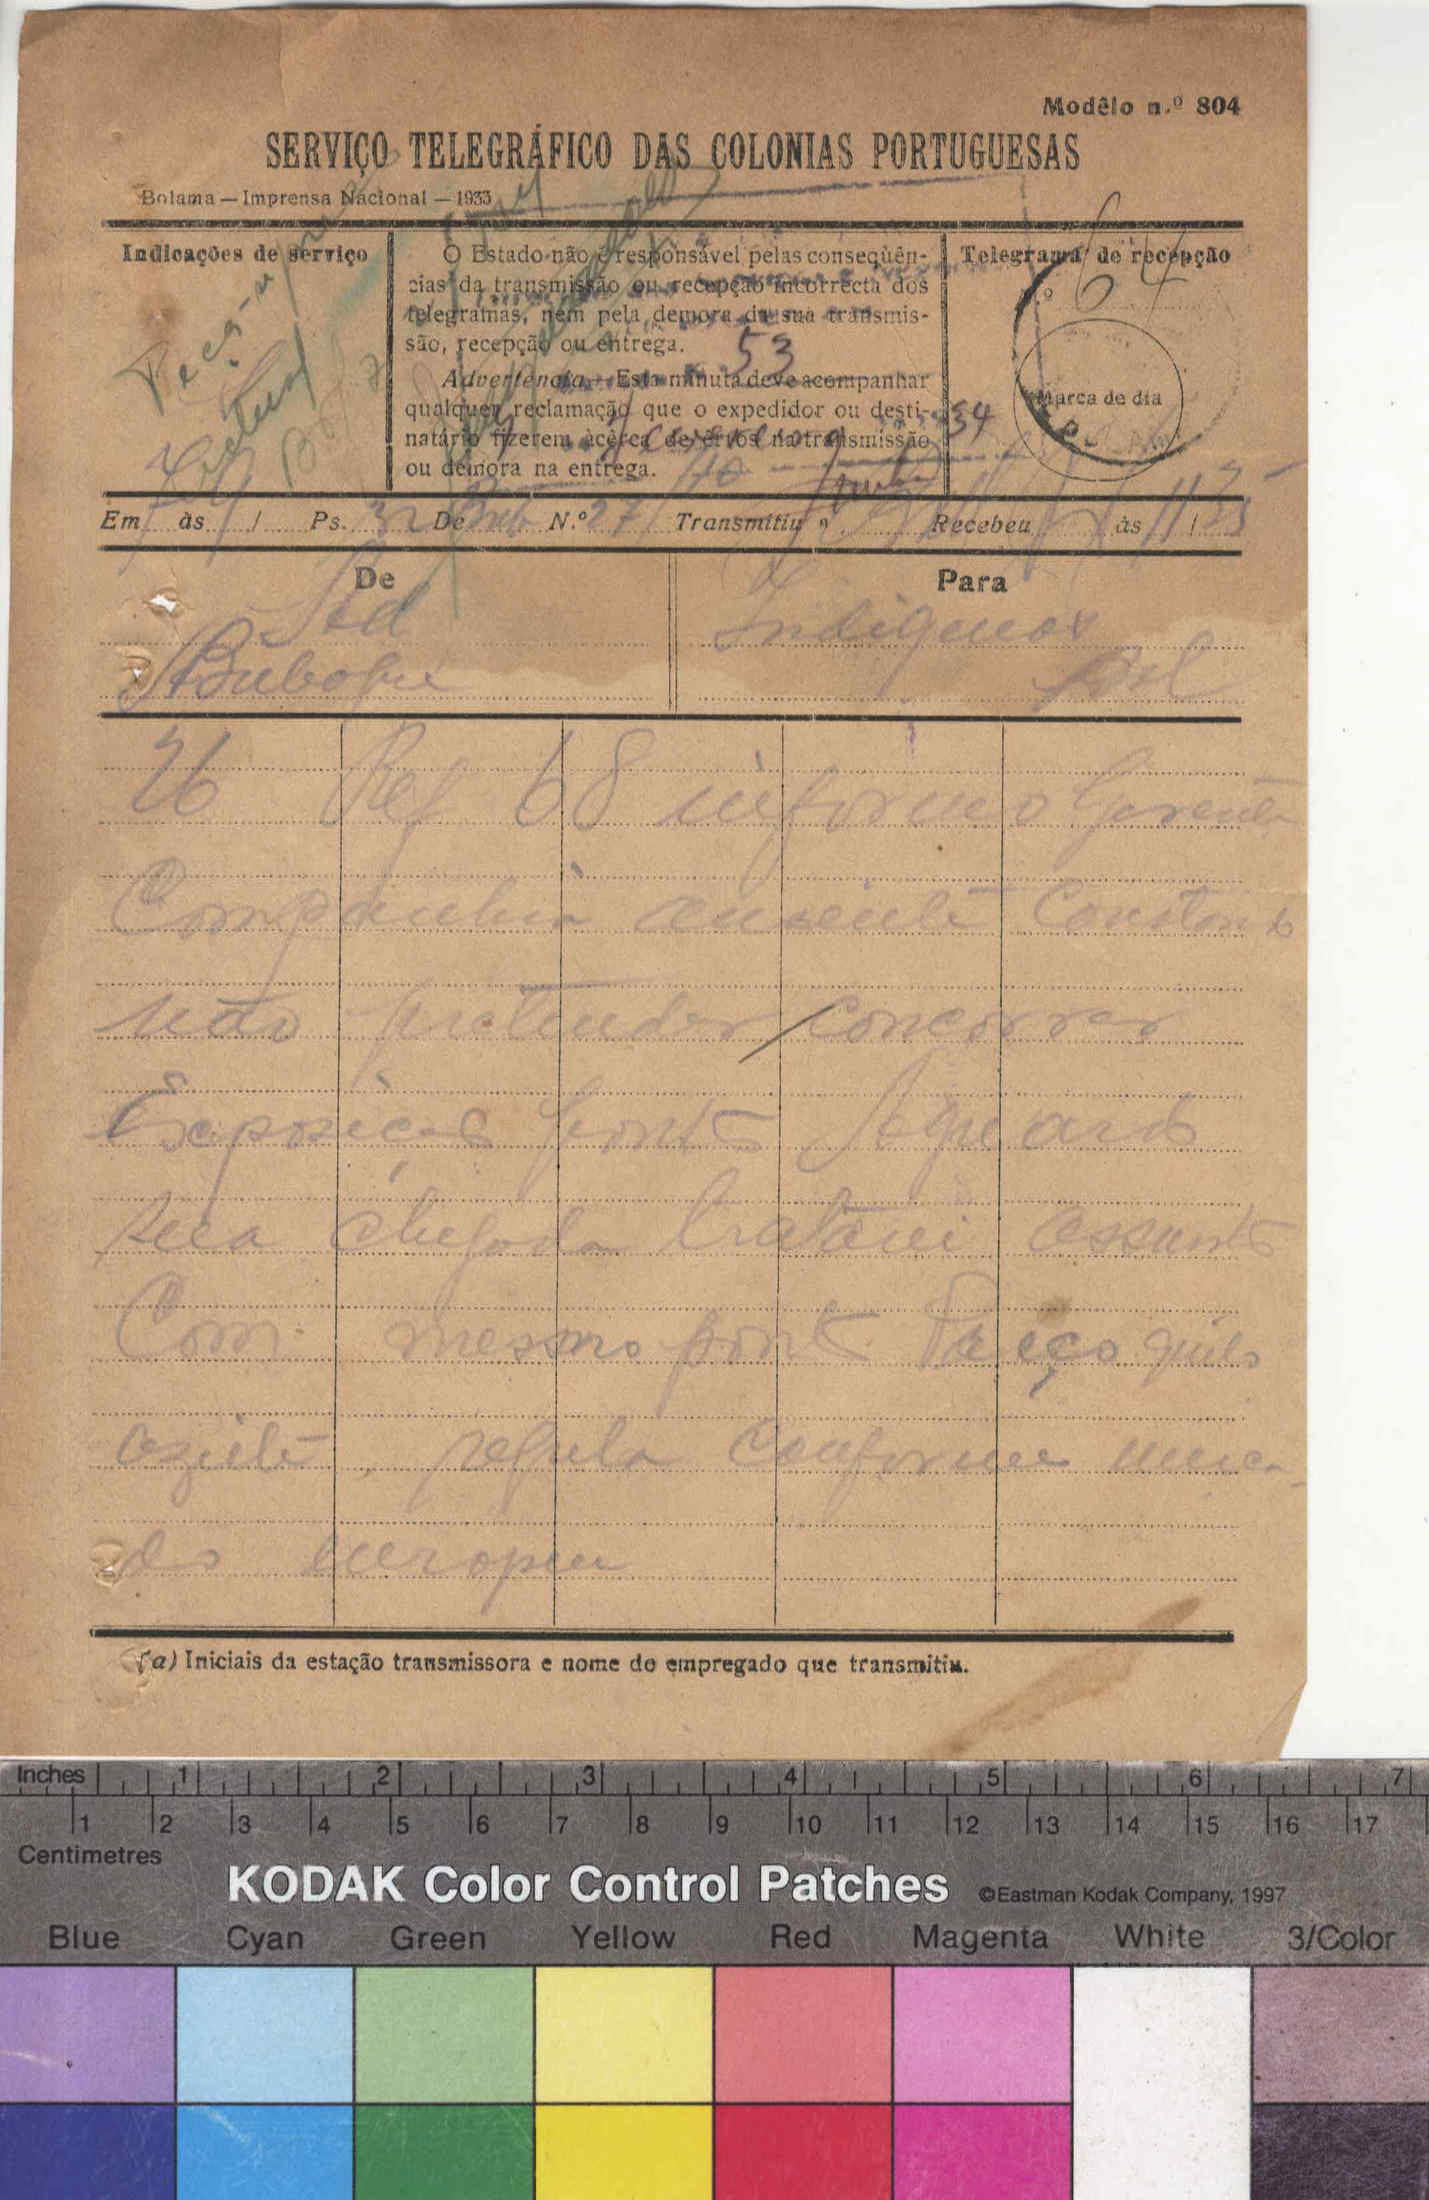 Modêlo n.º 804
SERVIÇO TELEGRÁFICO DAS COLONIAS PORTUGUESAS
Bolama — Imprensa Nacional — 1933
Indicações de serviço
O Estado não é responsável pelas conseqüên-
cias da transmissão ou recepção incorrecta dos
telegramas, nem pela demora da sua transmis-
são, recepção ou entrega.
53
Advertência.—Esta minuta deve acompanhar
qualquer reclamação que o expedidor ou desti-
natário fizerem àcêrca de êrros na transmissão
ou demora na entrega.
Telegrama de recepção
n.º 64
Marca de dia
54
Em às / Ps. 32 De Bub N.º 27 Transmitiu a Recebeu às 11/35
De
Para
Sed
Bubaque
Indigenas
Bol
26 Ref 68 informo Gerente
Companhia ausente Constando
não pretender concorrer
Exposição ponto Aguardo
sua chegada tratarei assunto
Com mesmo ponto Preço quilo
azeite regula conforme merca-
do europeu
(a) Iniciais da estação transmissora e nome do empregado que transmitiu.
Inches 1 2 3 4 5 6 7
1 2 3 4 5 6 7 8 9 10 11 12 13 14 15 16 17
Centimetres
KODAK Color Control Patches ©Eastman Kodak Company, 1997
Blue Cyan Green Yellow Red Magenta White 3/Color